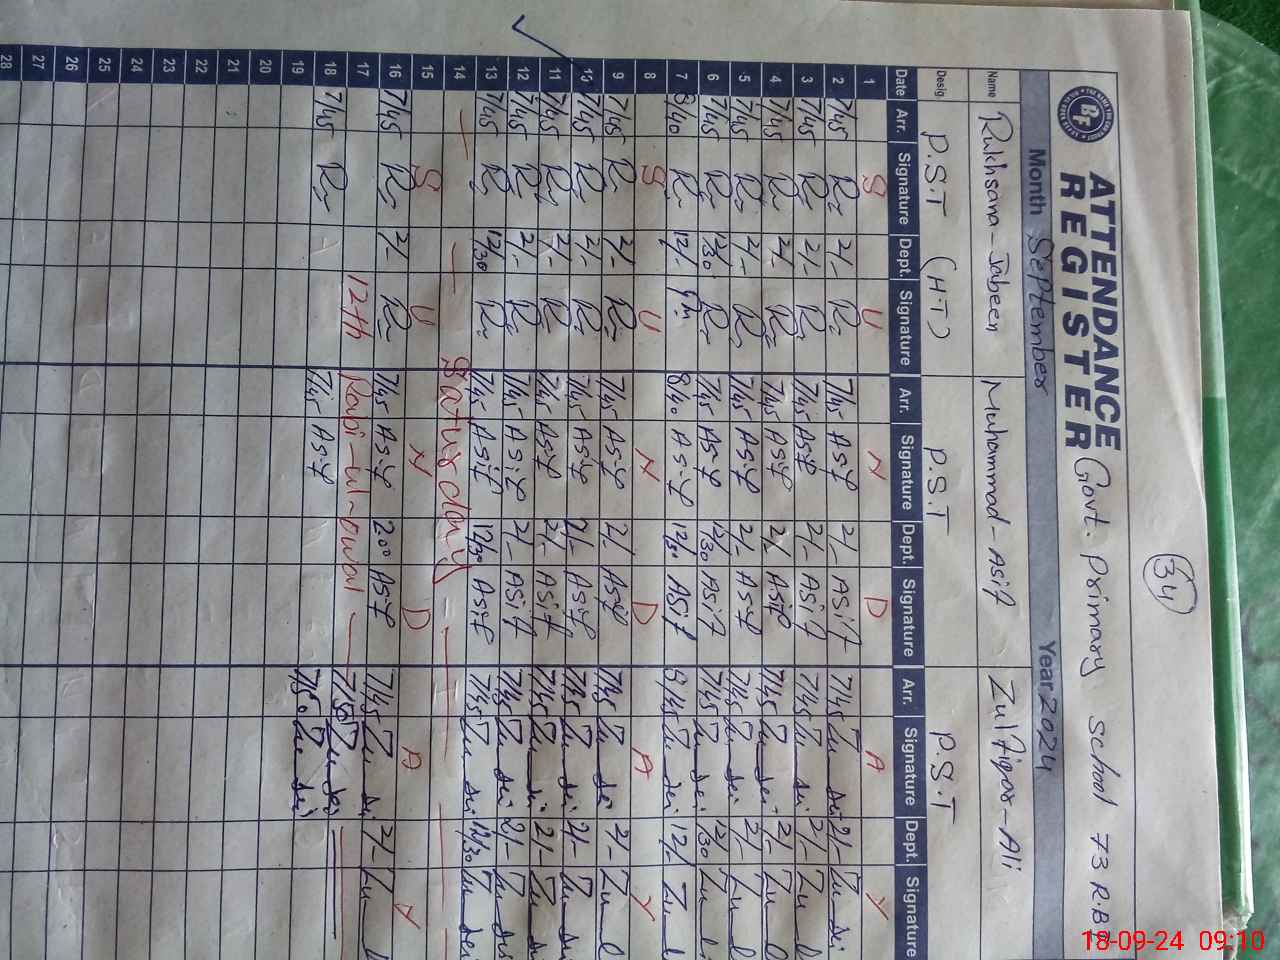 34
ATTENDANCE
REGISTER
Govt. Primary School 73 R.B
Month September Year 2024
Name Rukhsana-Jabeen Muhammad-Asif Zulfiqar-Ali
Desig P.S.T (HT) P.S.T P.S.T
Date Arr. Signature Dept. Signature Arr. Signature Dept. Signature Arr. Signature Dept. Signature
1 S U N D A Y
2 7/45 2/- 7/45 Asif 2/- Asif 7/45 2/-
3 7/45 2/- 7/45 Asif 2/- Asif 7/45 2/-
4 7/45 2/- 7/45 Asif 2/- Asif 7/45 2/-
5 7/45 2/- 7/45 Asif 2/- Asif 7/45 2/-
6 7/45 12/30 7/45 Asif 12/30 Asif 7/45 12/30
7 8/40 12/- 8/40 Asif 12/30 Asif 8/45 12/-
8 S U N D A Y
9 7/45 2/- 7/45 Asif 2/- Asif 7/45 2/-
10 7/45 2/- 7/45 Asif 2/- Asif 7/45 2/-
11 7/45 2/- 7/45 Asif 2/- Asif 7/45 2/-
12 7/45 2/- 7/45 Asif 2/- Asif 7/45 2/-
13 7/45 12/30 7/45 Asif 12/30 Asif 7/45 12/30
14 Saturday
15 S U N D A Y
16 7/45 2/- 7/45 Asif 2:00 Asif 7/45 2/-
17 12th Rabi-ul-awal
18 7/45 7/45 Asif
19
20
21
22
23
24
25
26
27
28
18-09-24 09:10